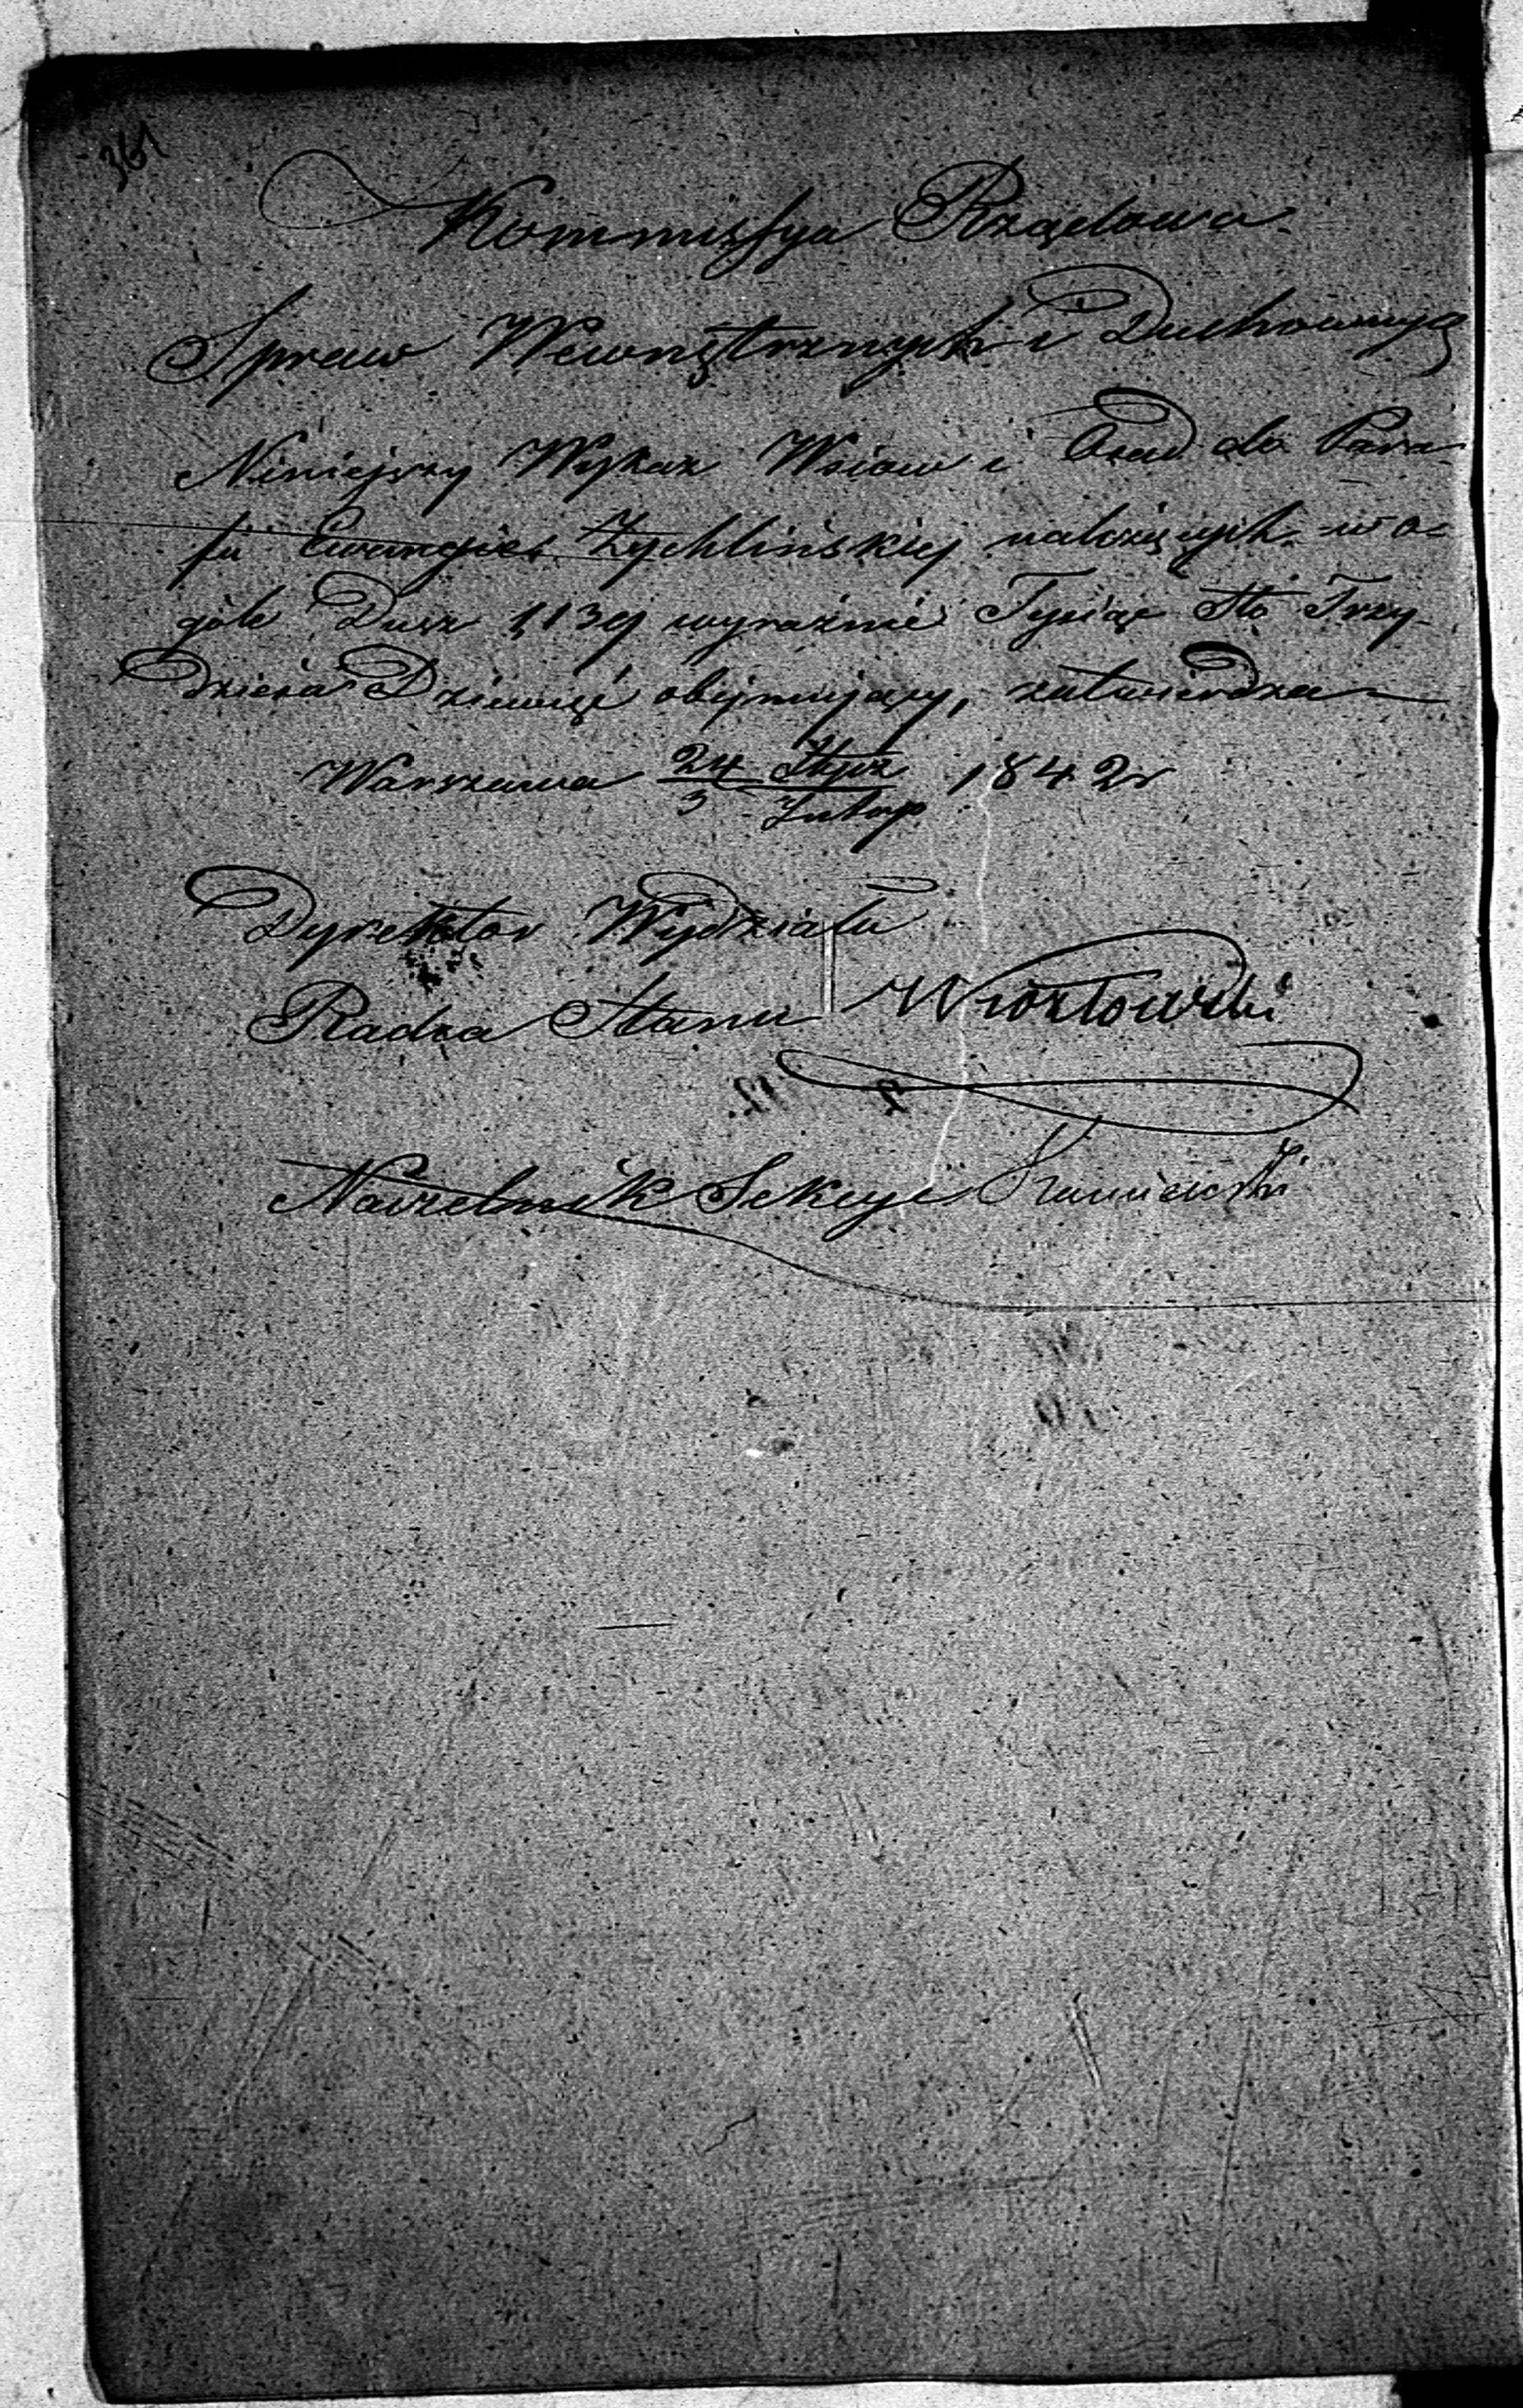 361
Kommissya Rządowa
Spraw Wewnętrznych i Duchownych
Niniejszy Wykaz Wsiow i Osad do Para-
fii Ewangiel Żychlińskiey należących w o-
góle Dusz 1139 wyraźnie Tysiąc Sto Trzy-
dzieści Dziewięć obejmujący, zatwierdza
Warszawa 24 Stycz 1842 r
5 Lutego
Dyrektor Wydziału
Radca Stanu
Naczelnik Sekcyi